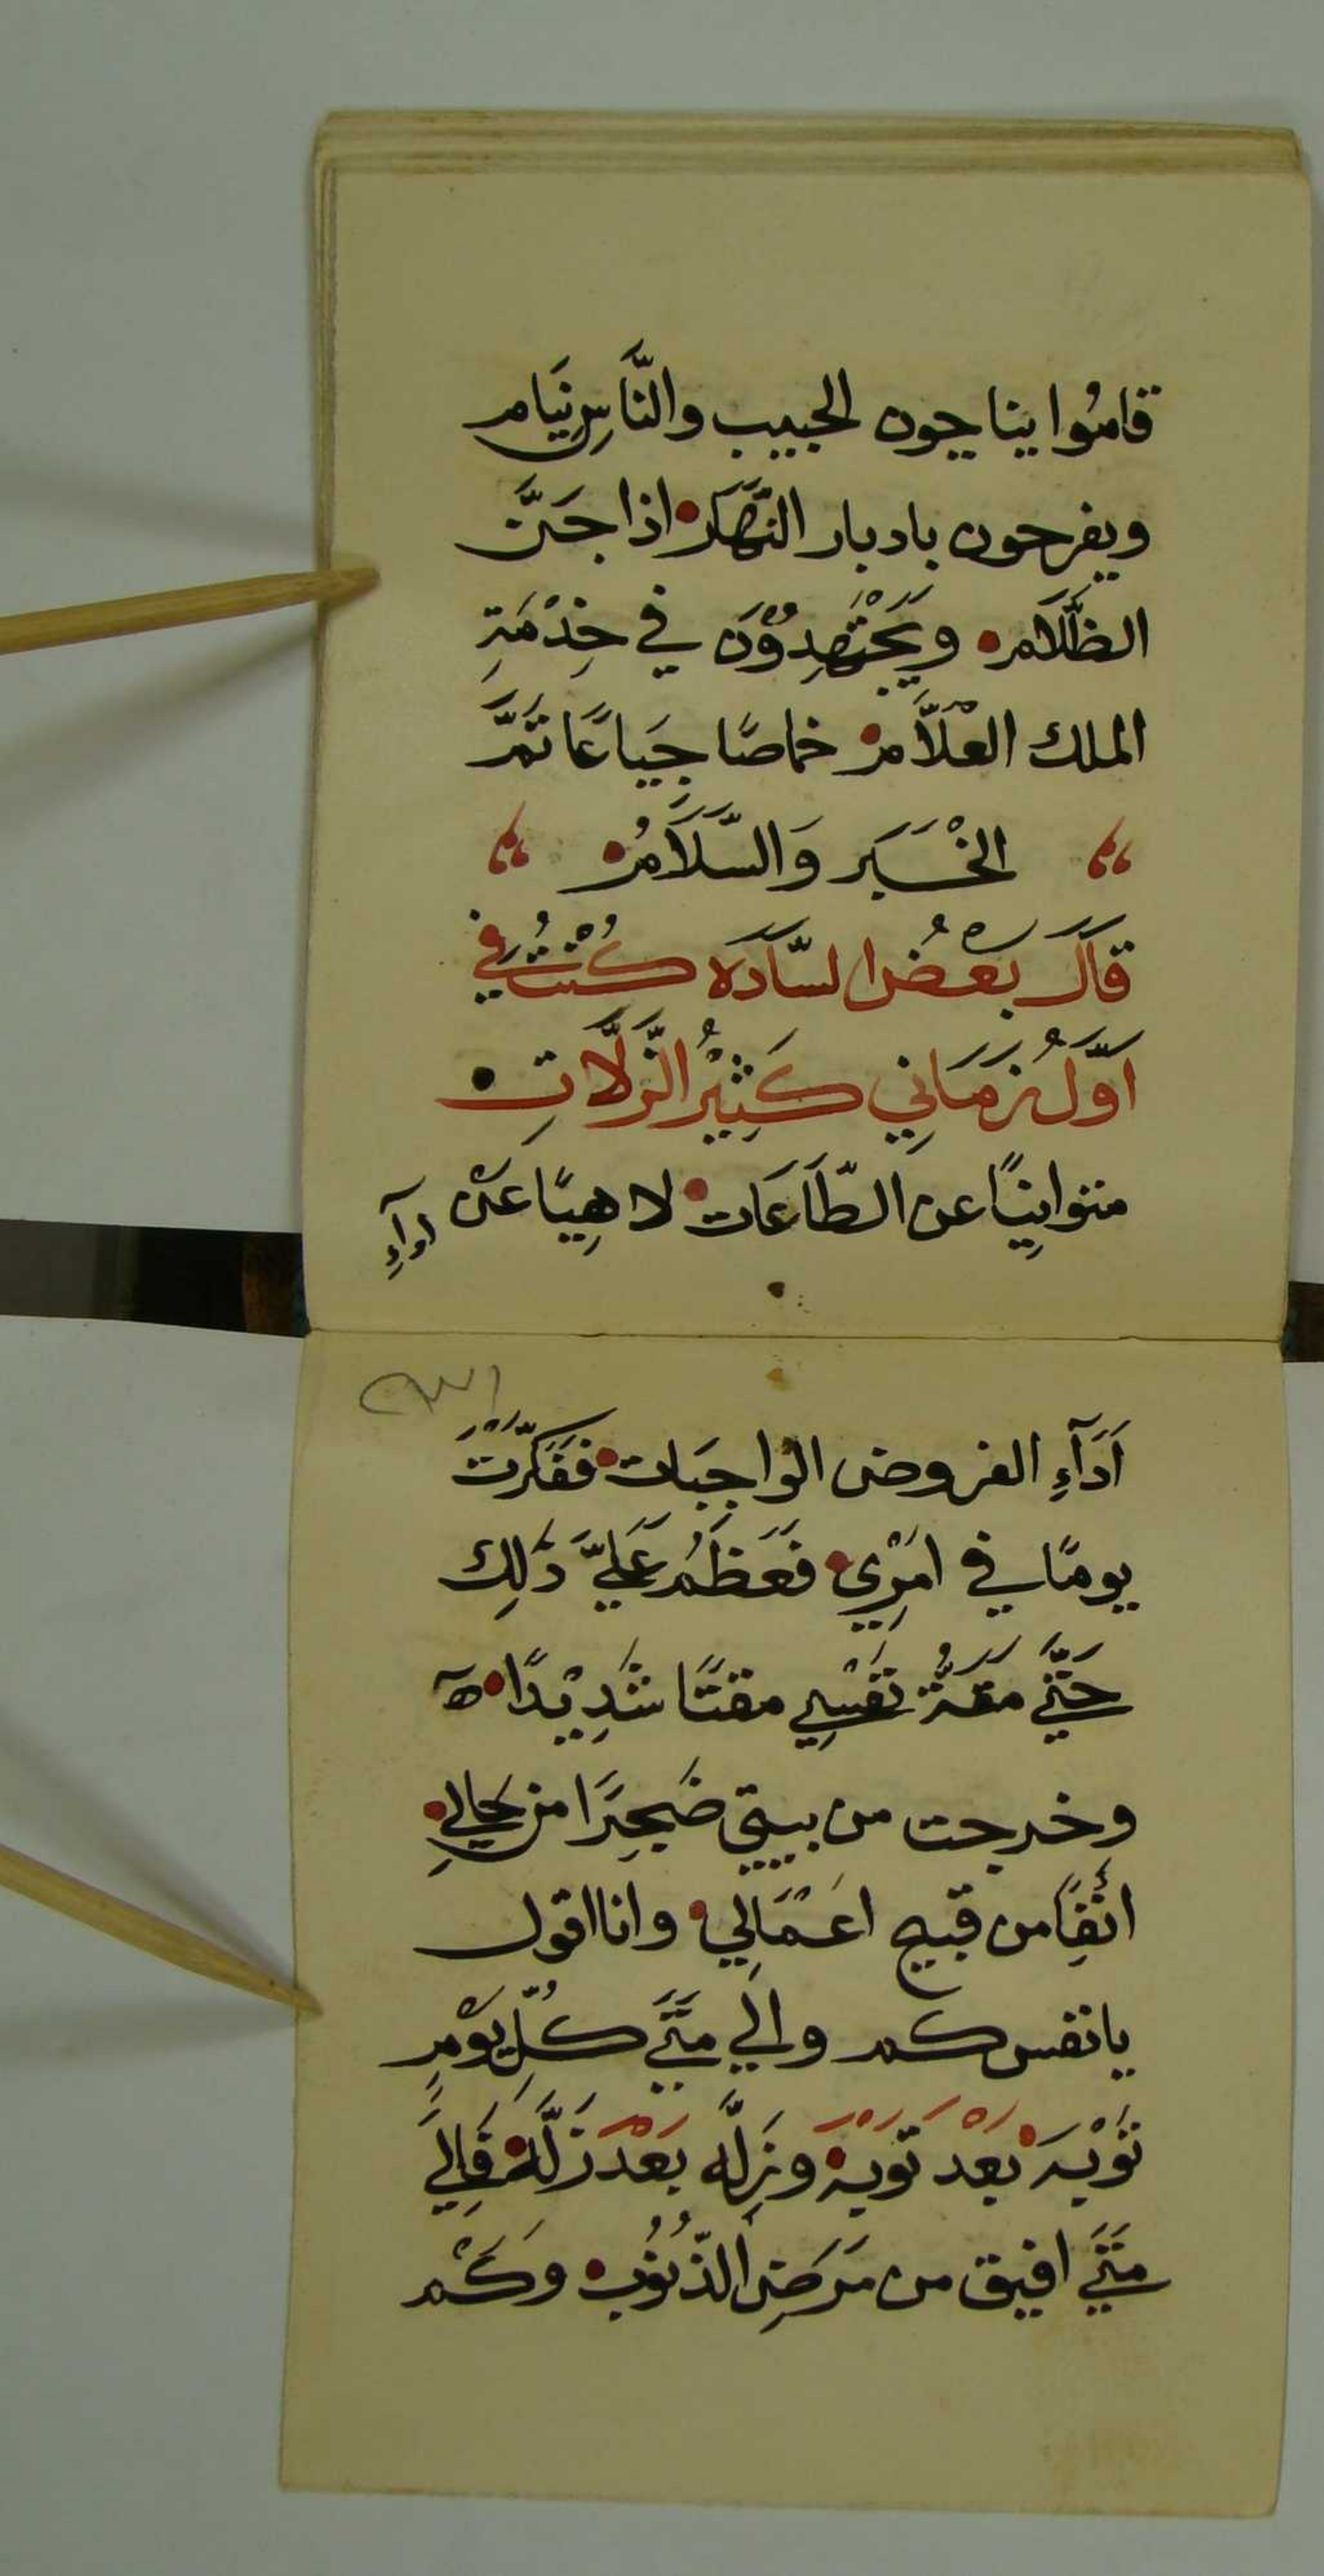 قامُوا يناجون الحبيب والنَّاسِ نِيَام
ويفرحون بادبار النَّهَار اذا جَنَّ
الظَّلَام ويَجْتَهِدُوْنَ في خِدْمَةِ
الملك العَلَّام خماصًا جِيَاعًا تَمَّ
الخْبَر وَالسَّلَامُ
قَالَ بَعْضُ السَّادَه كُنْتُ في
اَوَّلُ زَمَانِي كَثِيْرُ الزَّلَّاتِ
متوانِيًا عن الطَّاعَات لاهِيًا عَنْ
ادآءِ
اَدَآءِ الفروض الواجِبَات فَفَكَّرْتُ
يومًا في امْرِي فَعَظُمَ عَلَيَّ ذَلِك
حَتَّي مَقَتُّ نَفْسِي مقتًا شَدِيْدًا ه
وخرجت من بيتي ضَجِرًا من حَالِي
انِفًا من قبيح اعْمَالِي وانا اقول
يا نفس كم والي مَتَي كُلِّ يَوْمٍ
تَوْبَه بَعْد تَوْبَه وزِلَّه بَعْدَ زَلَّه فَالِيَ
مَتَي افيق من مَرَضِ الذُّنُوْب وَكَمْ